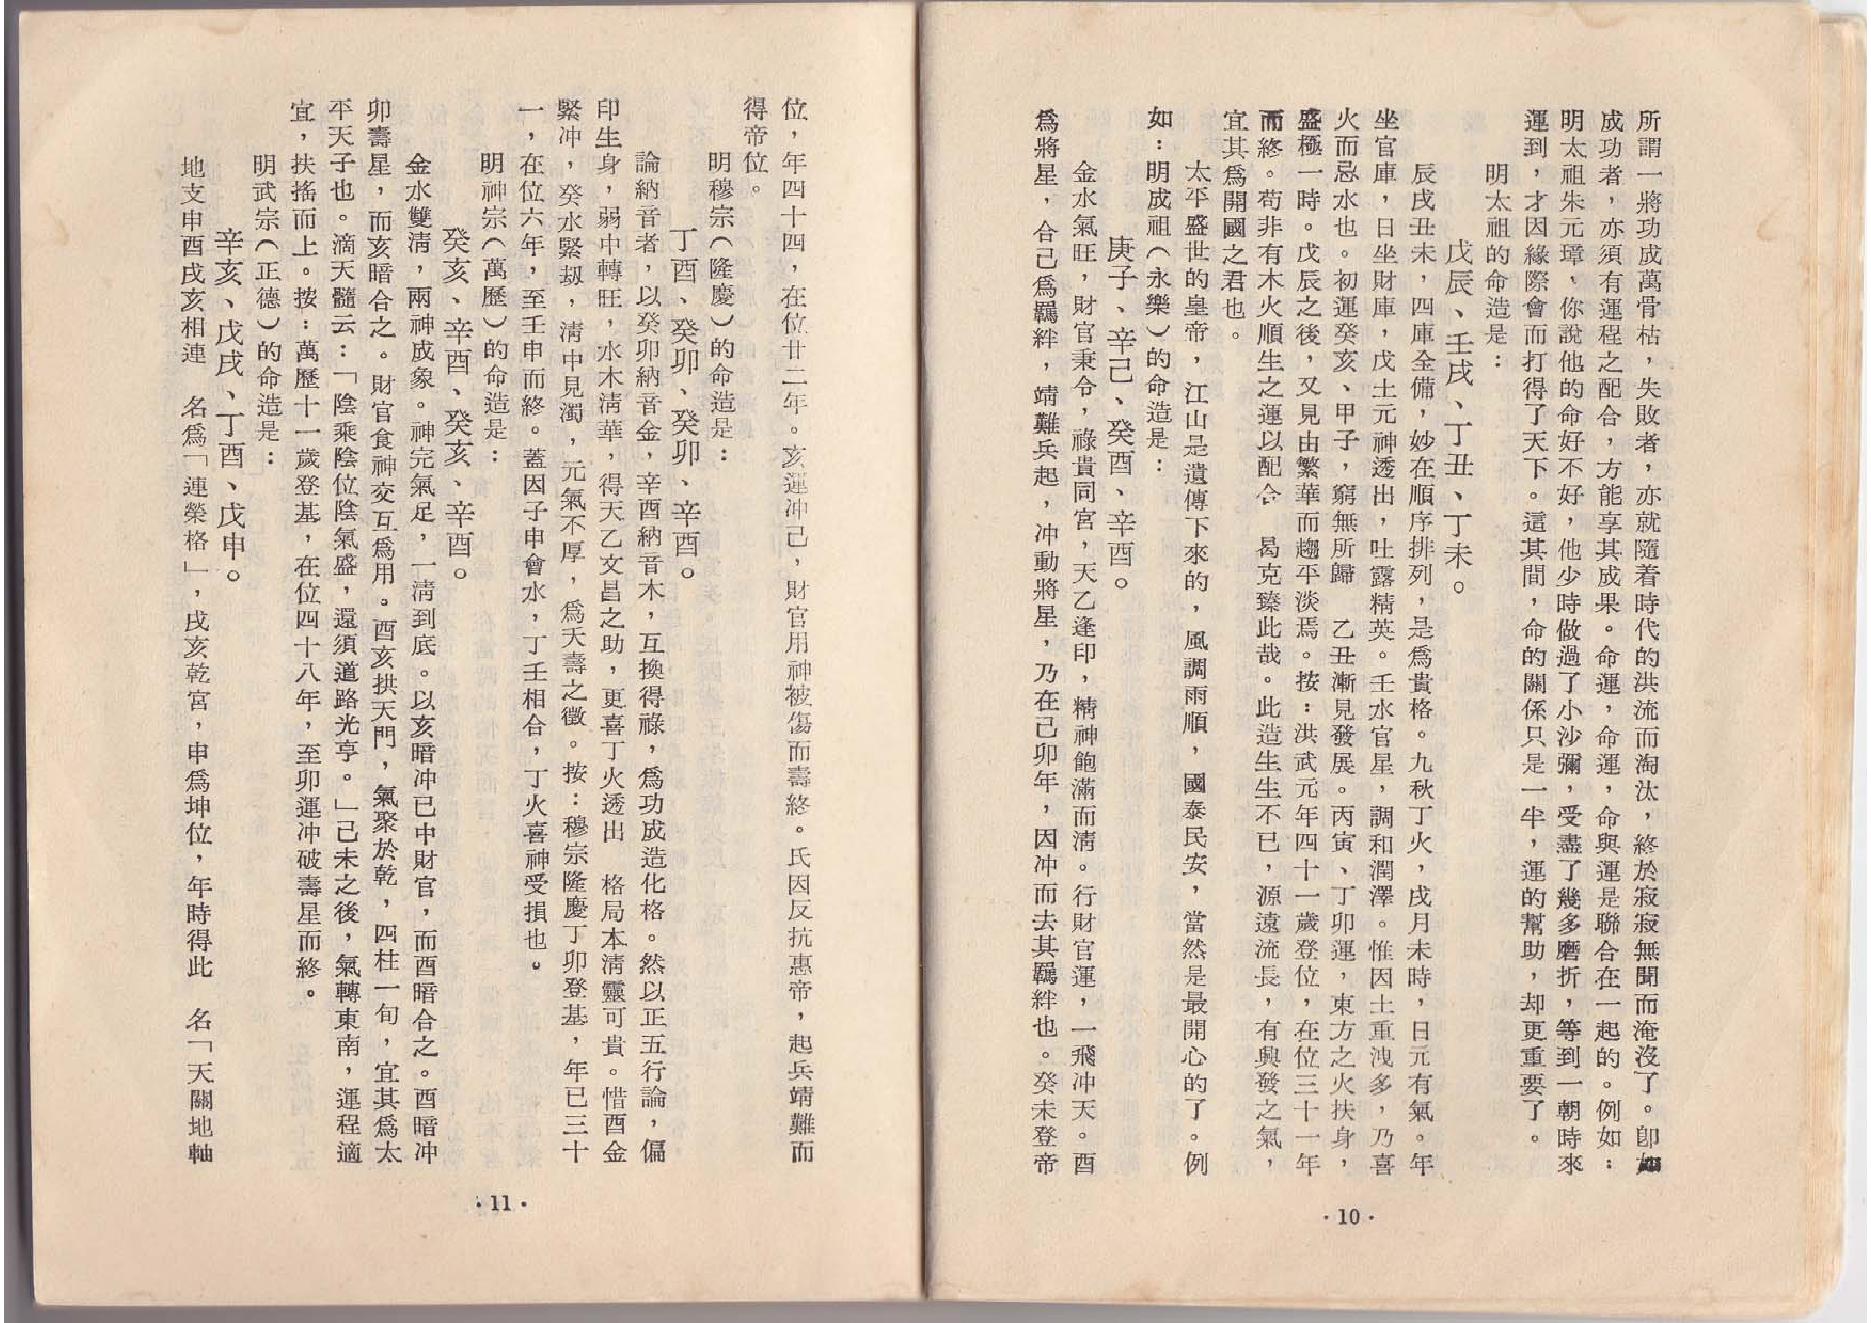 所謂一將功成萬骨枯，失敗者，亦就隨着時代的洪流而淘汰，終於寂寂無聞而淹沒了。卽如
成功者，亦須有運程之配合，方能享其成果。命運，命運，命與運是聯合在一起的。例如：
明太祖朱元璋，你說他的命好不好，他少時做過了小沙彌，受盡了幾多磨折，等到一朝時來
運到，才因緣際會而打得了天下。這其間，命的關係只是一半，運的幫助，却更重要了。
明太祖的命造是：
戊辰、壬戌、丁丑、丁未。
辰戌丑未，四庫全備，妙在順序排列，是爲貴格。九秋丁火，戌月未時，日元有氣。年
坐官庫，日坐財庫，戊土元神透出，吐露精英。壬水官星，調和潤澤。惟因土重洩多，乃喜
火而忌水也。初運癸亥、甲子，窮無所歸　乙丑漸見發展。丙寅、丁卯運，東方之火扶身，
盛極一時。戊辰之後，又見由繁華而趨平淡焉。按：洪武元年四十一歲登位，在位三十一年
而終。苟非有木火順生之運以配合　曷克臻此哉。此造生生不已，源遠流長，有興發之氣，
宜其爲開國之君也。
太平盛世的皇帝，江山是遺傳下來的，風調雨順，國泰民安，當然是最開心的了。例
如：明成祖（永樂）的命造是：
庚子、辛己、癸酉、辛酉。
金水氣旺，財官秉令，祿貴同宮，天乙逢印，精神飽滿而淸。行財官運，一飛冲天。酉
爲將星，合己爲羈絆，靖難兵起，冲動將星，乃在己卯年，因冲而去其羈絆也。癸未登帝
位，年四十四，在位廿二年。亥運冲己，財官用神被傷而壽終。氏因反抗惠帝，起兵靖難而
得帝位。
明穆宗（隆慶）的命造是：
丁酉、癸卯、癸卯、辛酉。
論納音者，以癸卯納音金，辛酉納音木，互換得祿，爲功成造化格。然以正五行論，偏
印生身，弱中轉旺，水木淸華，得天乙文昌之助，更喜丁火透出　格局本淸靈可貴。惜酉金
緊冲，癸水緊刼，淸中見濁，元氣不厚，爲夭壽之徵。按：穆宗隆慶丁卯登基，年已三十
一，在位六年，至壬申而終。蓋因子申會水，丁壬相合，丁火喜神受損也。
明神宗（萬歷）的命造是：
癸亥、辛酉、癸亥、辛酉。
金水雙淸，兩神成象。神完氣足，一淸到底。以亥暗冲已中財官，而酉暗合之。酉暗冲
卯壽星，而亥暗合之。財官食神交互爲用。酉亥拱天門，氣聚於乾，四柱一旬，宜其爲太
平天子也。滴天髓云：「陰乘陰位陰氣盛，還須道路光亨。」己未之後，氣轉東南，運程適
宜，扶搖而上。按：萬歷十一歲登基，在位四十八年，至卯運冲破壽星而終。
明武宗（正德）的命造是：
辛亥、戊戌、丁酉、戊申。
地支申酉戌亥相連　名爲「連榮格」，戌亥乾宮，申爲坤位，年時得此　名「天關地軸